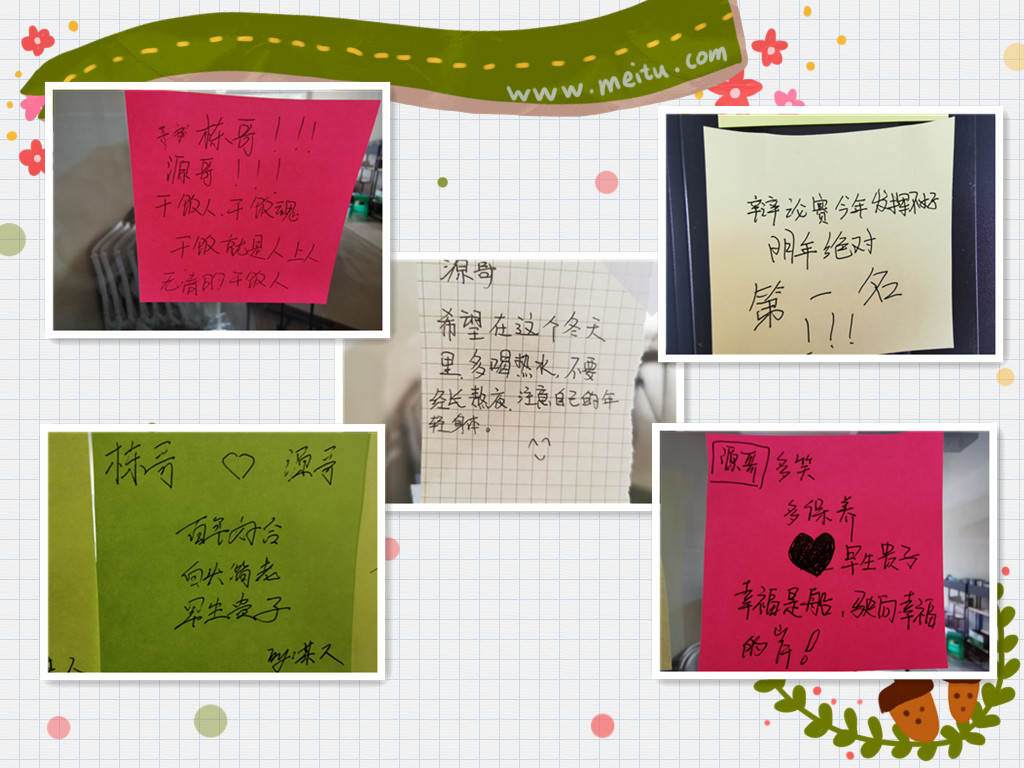 www.meitu.com
栋哥!!!
源哥!!!
干饭人,干饭魂
干饭就是人上人
干饭人
辩论赛今年发挥不好
明年绝对
第一名
!!!
源哥
希望在这个冬天
里,多喝热水,不要
经长熬夜,注意自己的年
轻身体。
栋哥 ♡ 源哥
百年好合
白头偕老
早生贵子
by:某人
源哥 多笑
多保养
早生贵子
幸福是船,驶向幸福
的岸!